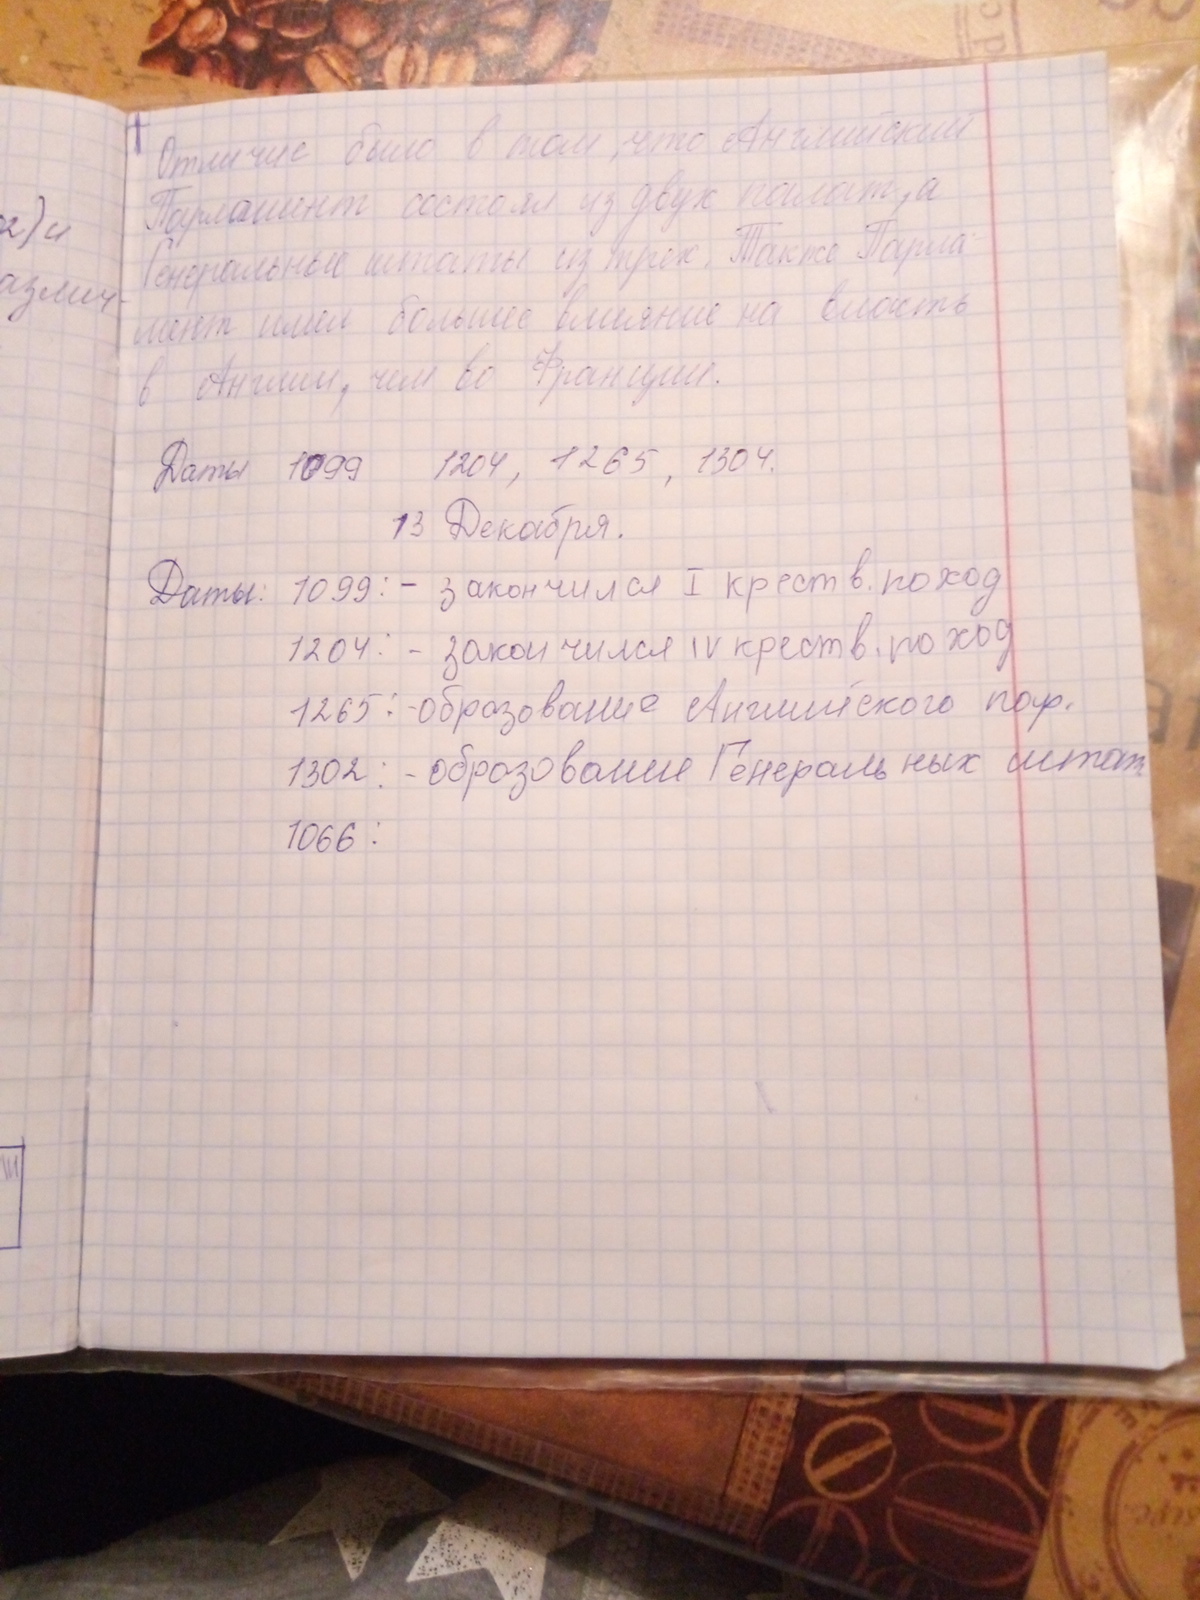 2) и
азлич-
Отличие было в том, что Английский
Парламент состоял из двух палат, а
Генеральные штаты из трех. Также Парла-
мент имел большее влияние на власть
в Англии, чем во Франции.
Даты 1099 1204, 1265, 1304.
13 Декабря.
Даты: 1099: - закончился I креств. поход
1204: - закончился IV креств. поход
1265: - образование Английского пар.
1302: - образование Генеральных штат
1066: